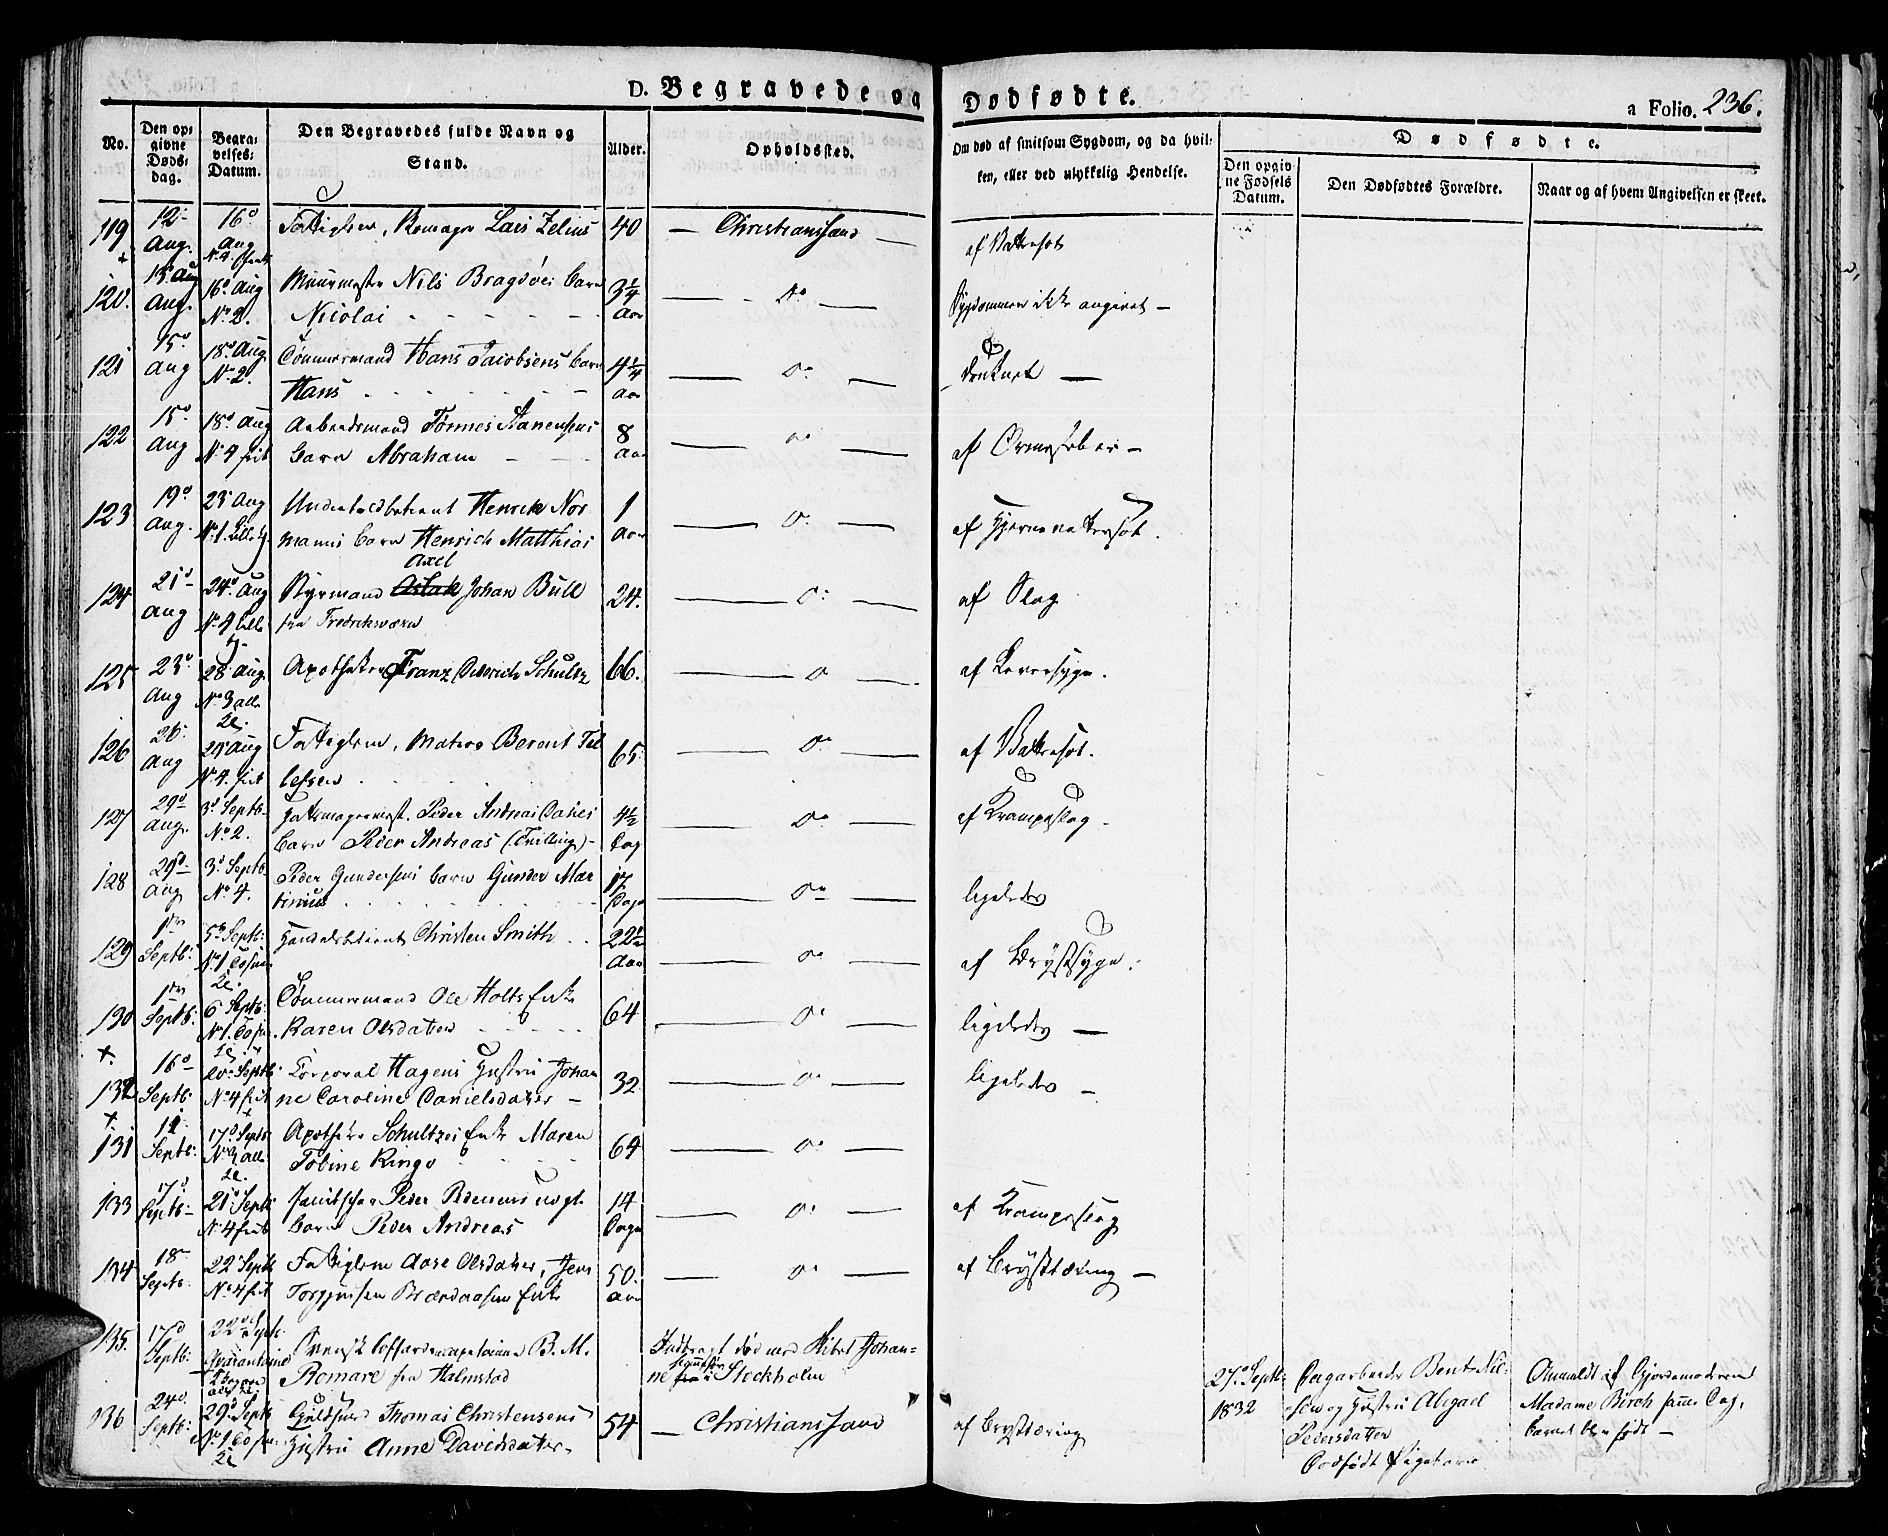 D. Begravede og Dødfødte.
a Folio. 236.
No.
Den op-
givne
Døds-
dag.
Begra-
velses-
Datum.
Den Begravedes fulde Navn og
Stand.
Alder.
Opholdssted.
Om død af smitsom Sygdom, og da hvil-
ken, eller ved ulykkelig Hendelse.
Dødfødte.
Den opgiv-
ne Fødsels
Datum.
Den Dødfødtes Forældre.
Naar og af hvem Angivelsen er skeet.
119 12 Aug. 16 Aug Fattiglem, Lars Zelius 40 — Christianssand — af Vattersot
120. 15 Aug. 16 Aug No 2. Muurmester Nils Bragdøes Barn
Nicolai 3¼ Aar — Do — Sygdommen ikke angivet —
121 15 Aug 18 Aug No 2. Tømmermand Hans Jacobsens Barn
Hans 4¼ Aar — Do — druknet —
122 15 Aug 18 Aug No 4 frit Arbeidsmand Tønnes Aanensens
Barn Abraham 8 Aar — Do — af Ormefeber —
123 19 Aug. 23 Aug No 1. Underto ldbetient Henrik Nor-
manns Barn Henrich Matthias 1 Aar — Do — af Hjernevattersot.
124 21 Aug 24 Aug Styrmand Axel Johan Bull
fra Fredriksværn 24. — Do — af Slag
125 23 Aug 28 Aug No 3 Apotheker Franz Diderich Schultz 66. — Do — af Leversyge.
126 26 Aug 29 Aug No 4. frit Fattiglem, Matros Berent Tel-
lefsen 65 — Do — af Vattersot.
127 29 Aug. 3 Septb. No 2. Hattemagermest. Peder Andreas Dahls
Barn Peder Andreas (Trilling) 4½ Dag — Do — af Krampeslag
128 29 Aug 3 Septb. No 4. Peder Gundersens Barn Gunder Mar-
tinius 17 Dage — Do — ligeledes
129 Septb: 5 Septb: No 1 Handelsbetient Christen Smith 22½ Aar — Do — af Brystsyge.
130 Septb. 6 Septb: No 1. Tømmermand Ole Holts Enke
Karen Olsdatter 64 — Do — ligeledes —
132 16 Septb: 20 Septb: No 4 frit Corporal Hagens Hustru Johan-
ne Caroline Danielsdatter — 32 — Do — ligeledes —
131 Septb: 17 Septb No 3 Apotheker Schultzes Enke Maren
Tobine Ring 64 — Do —
133 17 Septb: 21 Septb: No 4 frit Peder Pedersens uægte
Barn Peder Andreas 14 Dage — Do — af Krampeslag
134 18 Septb. 22 Septb No 4 frit Fattiglem Aase Olsdatter, Jens
Torgersen Brændaasens Enke 50. Aar — Do — af Brysttæring —
135. 17 Septb: 22 Septb. Svensk Coffardiecapitaine B. M.
Romare fra Halmstad Indbragt død med Skibet Johan-
ne fra Stockholm
136 24 Septb: 29 Septb No 1 Guldsmed Thomas Christensens
Hustru Anne Davidsdatter 54 — Christianssand af Brysttæring
27 Septb: 1832 Dagarbeider Bent Niel-
sen og Hustru Abigael
Pedersdatter
Dødfødt Pigebarn
Anmeldt af Gjordemoderen
Madame Birch samme Dag,
Barnet blev født —